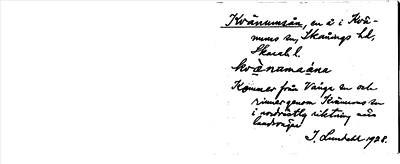 Kvänumsån, en å i Kvä-
nums sn, Skånings hd,
Skarab. l.
kvä̀numaåna
Kommer från Vånga sn och
rinner genom Kvänums sn
i nordvästlig riktning mot
landsvägen
J. Lundahl 1928.